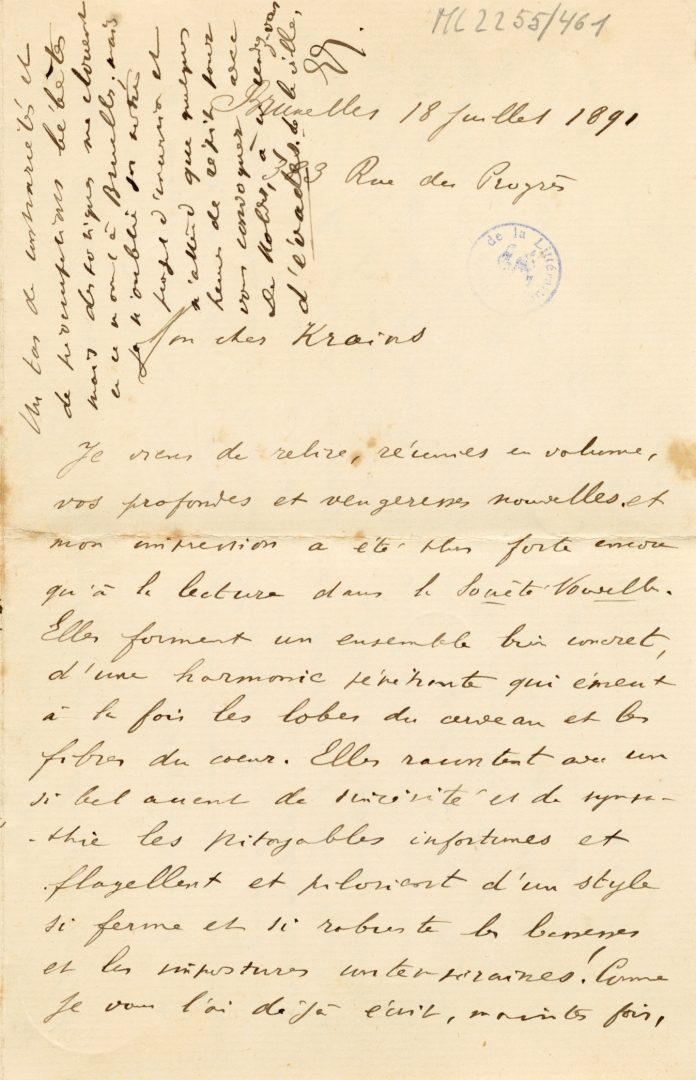 ML 2255/461
Bruxelles 18 Juillet 1891
Rue du Progrès
de la Littérat
Mon cher Krains
Je viens de relire, réunies en volume,
vos profondes et vengeresses nouvelles, et
mon impression a été plus forte encore
qu'à la lecture dans la Société Nouvelle.
Elles forment un ensemble bien concret,
d'une harmonie pénétrante qui émeut
à la fois les lobes du cerveau et les
fibres du coeur. Elles racontent avec un
si bel accent de sincérité et de sympa-
-thie les pitoyables infortunes et
flagellent et pilorient d'un style
si ferme et si robuste les bassesses
et les impostures contemporaines! Comme
je vous l'ai déjà écrit, maintes fois,
Un tas de contrariétés et
de préoccupations bêbêtes
mais despotiques me clouent
en ce moment à Bruxelles, mais
je n'oublie pas notre
projet d'excursion et
n'attend que quelques
heures de répit pour
vous convoquer avec
De à un rendez-vous
d'évadés de la ville,